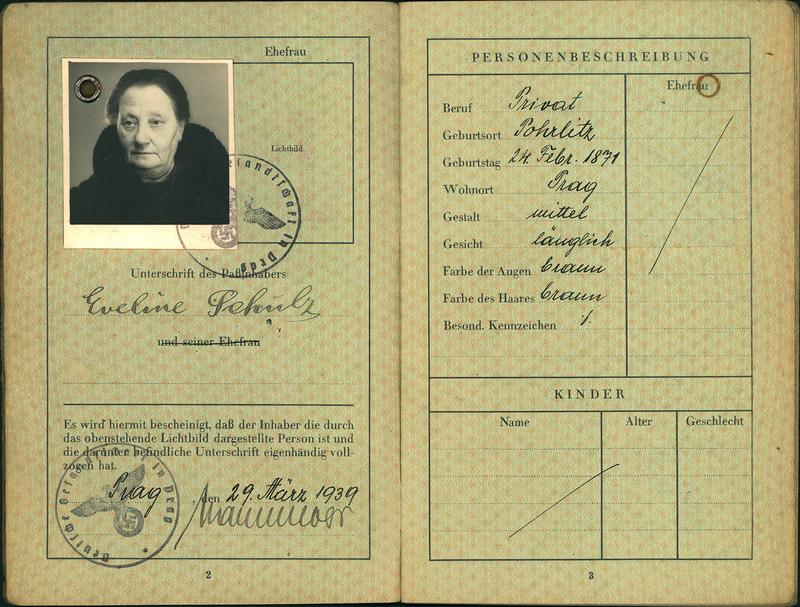 Ehefrau
Lichtbild
Gesandtschaft in Prag
Unterschrift des Paßinhabers
Eveline Schulz
und seiner Ehefrau
Es wird hiermit bescheinigt, daß der Inhaber die durch
das obenstehende Lichtbild dargestellte Person ist und
die darunter befindliche Unterschrift eigenhändig voll-
zogen hat.
Deutsche Gesandtschaft in Prag
Prag, den 29. März 1939
2
PERSONENBESCHREIBUNG
Ehefrau
Beruf Privat
Geburtsort Pohrlitz
Geburtstag 24. Febr. 1871
Wohnort Prag
Gestalt mittel
Gesicht länglich
Farbe der Augen braun
Farbe des Haares braun
Besond. Kennzeichen ./.
KINDER
Name Alter Geschlecht
3